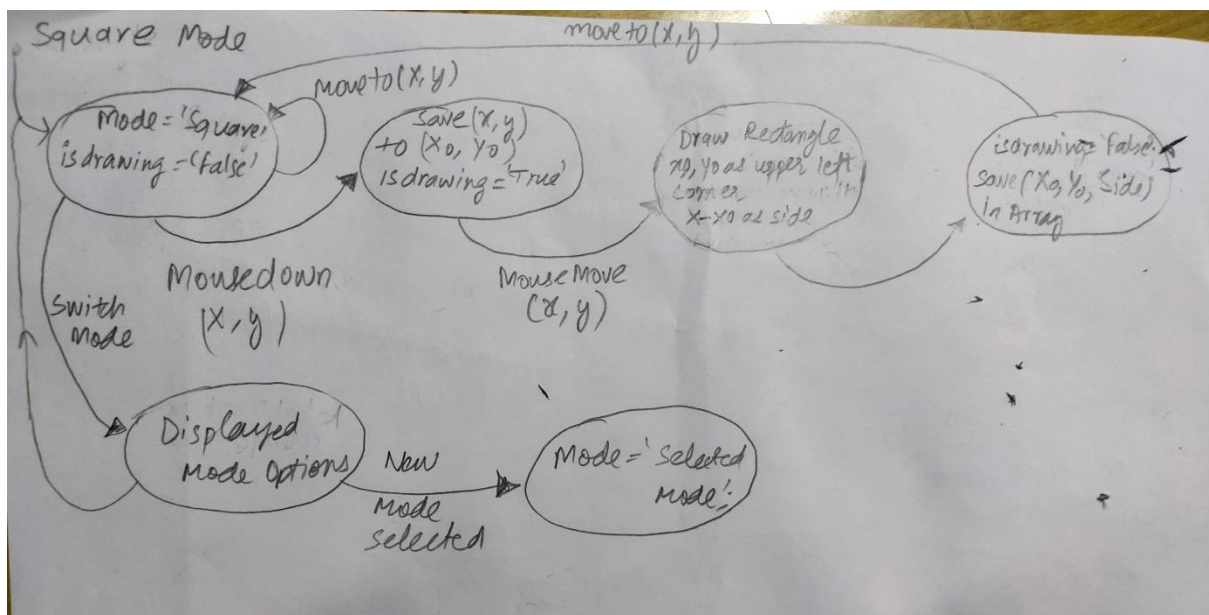 Square Mode
moveto(x,y)
moveto(x,y)
Mode = 'Square,
isdrawing = 'False'
Save(x,y)
to (x0, y0)
isdrawing = 'True'
Draw Rectangle
x0, y0 as upper left
corner
x-x0 as side
isdrawing= 'False'.
save(x0, y0, Side)
in Array
Mousedown
(x,y)
MouseMove
(x,y)
Switch
Mode
Displayed
Mode Options
New
Mode
selected
Mode = 'Selected
Mode';